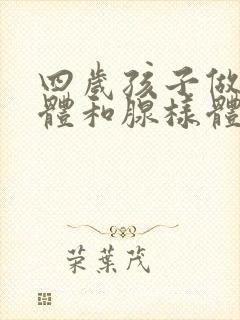 四歲孩子做
體和腺樣體
荣葉茂